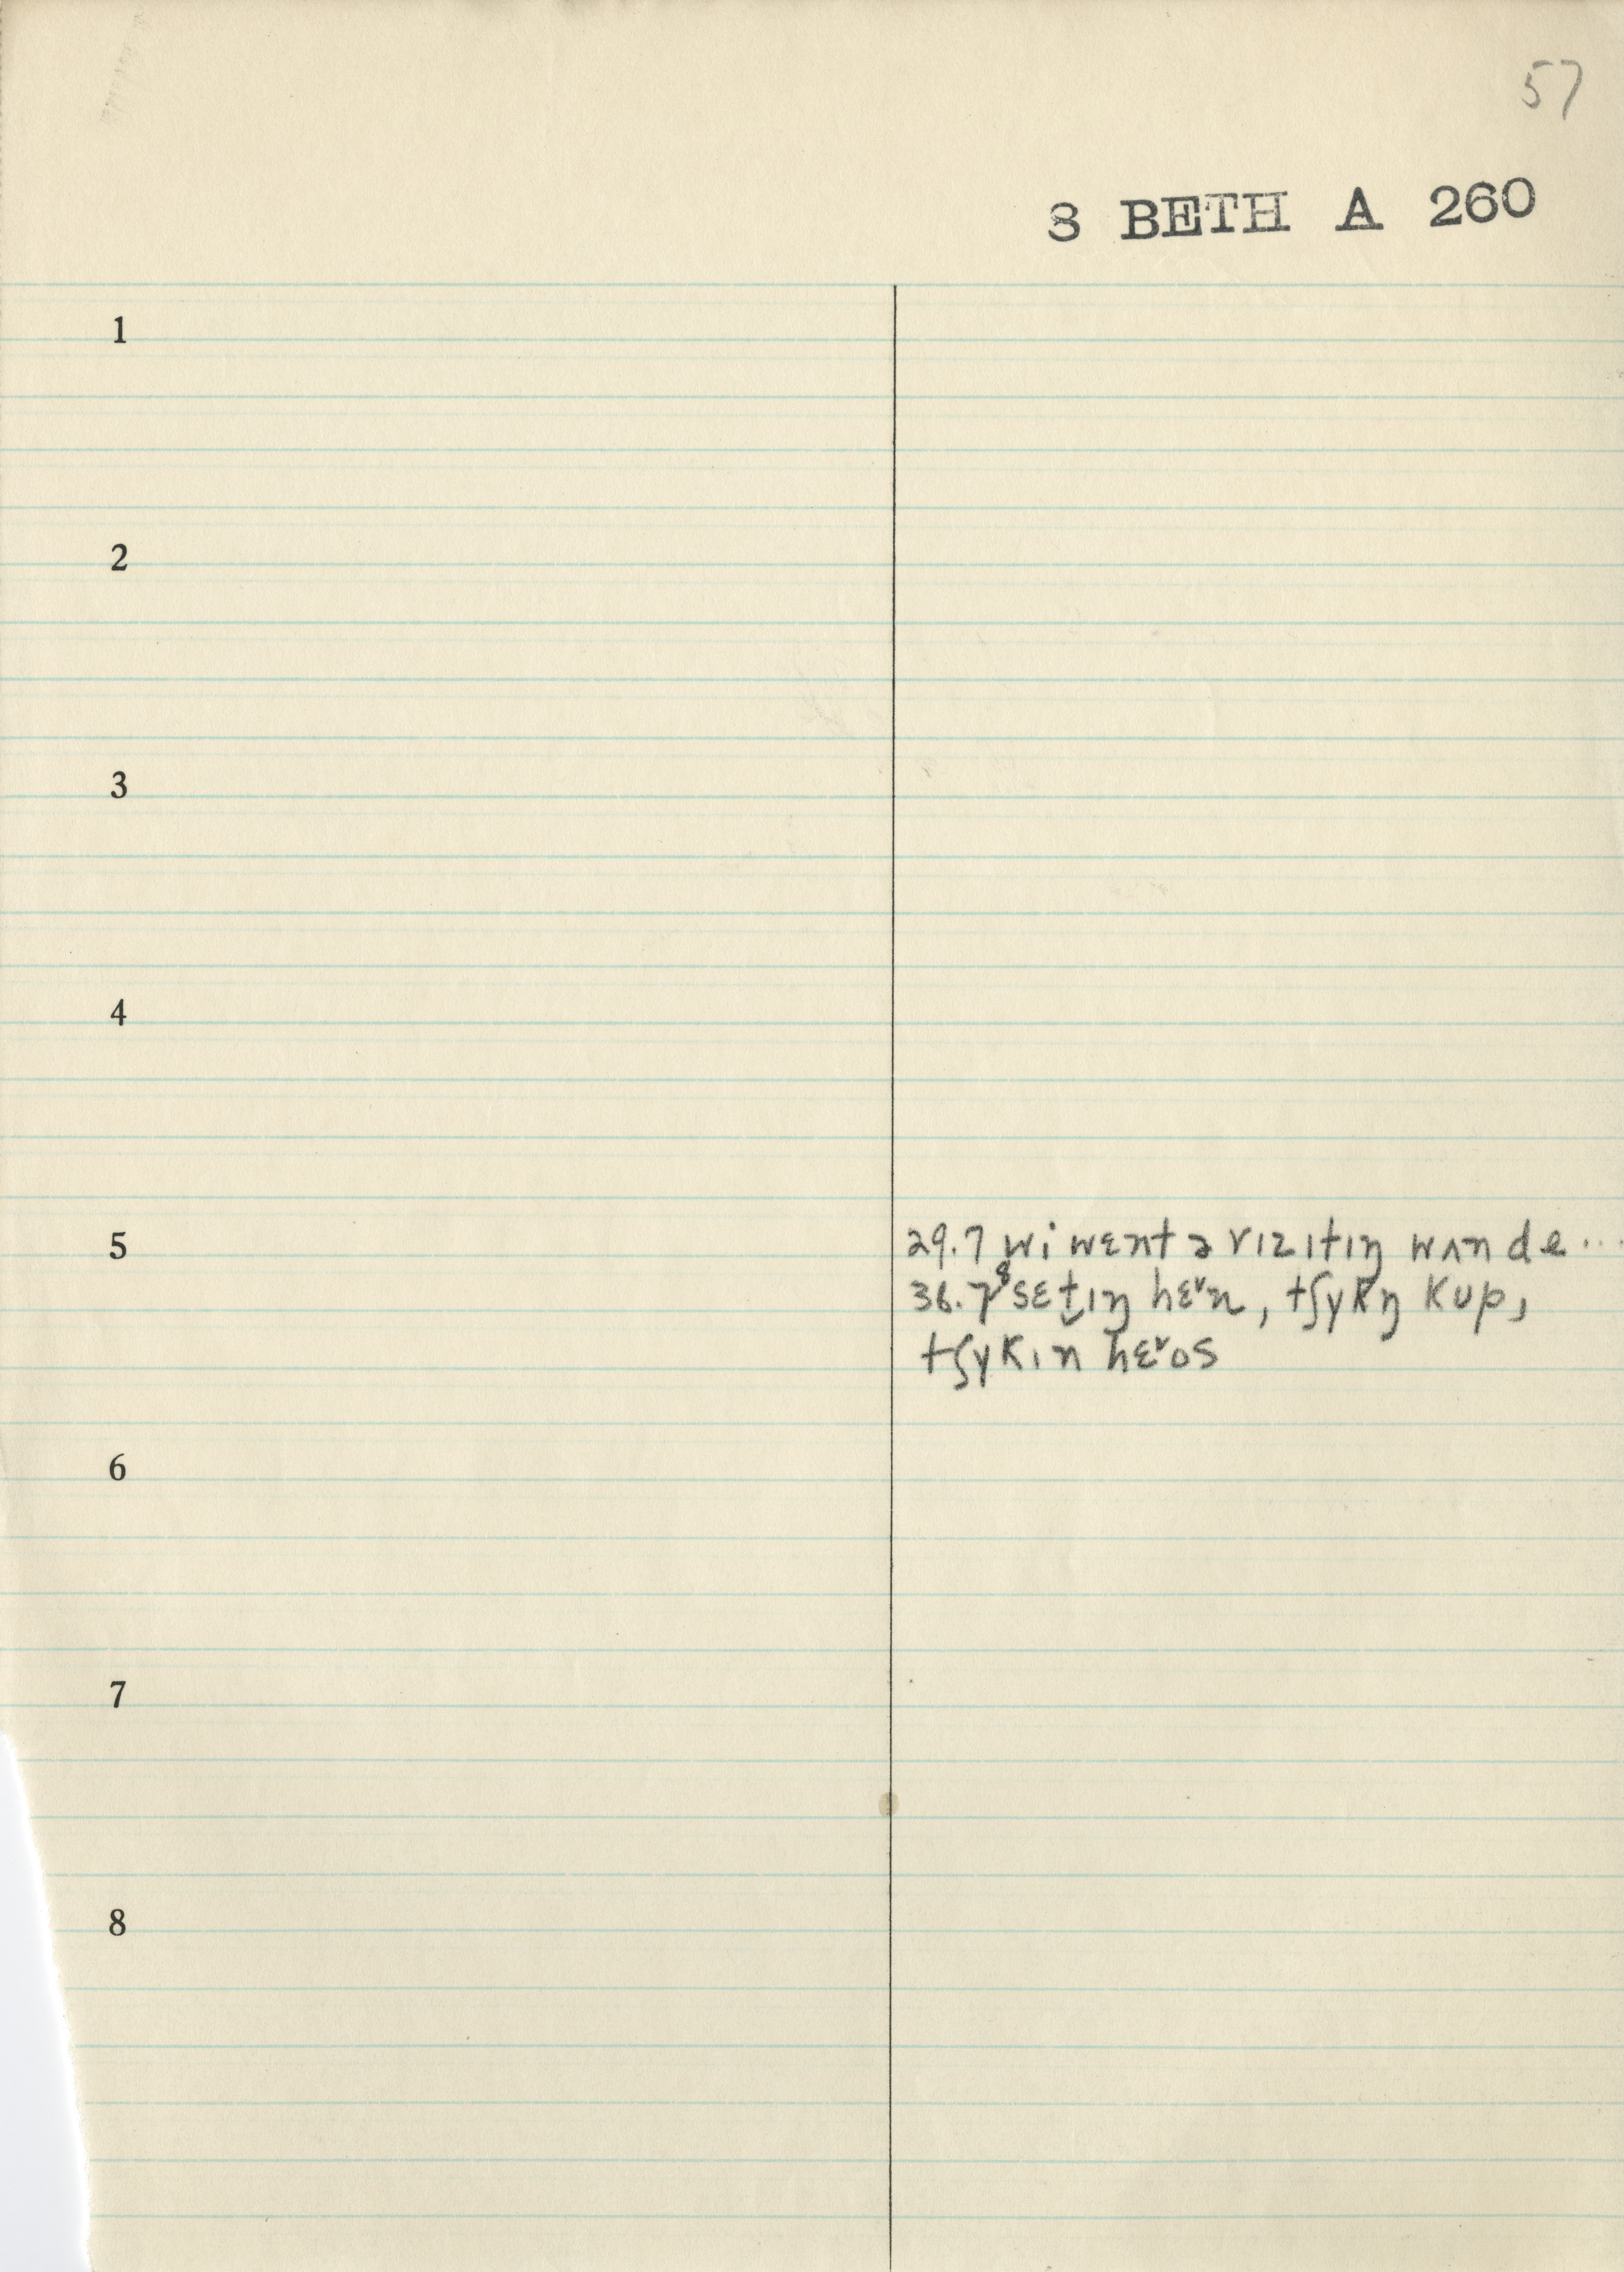 57
S BETH A 260
1
2
3
4
5
29.7 wi wɛnt ə vɪzɪtɪŋ wʌn de...
36.7⁸ sɛt̬ɪŋ hɛˇn, tʃykŋ kup,
tʃykɪn hɛˇos
6
7
8